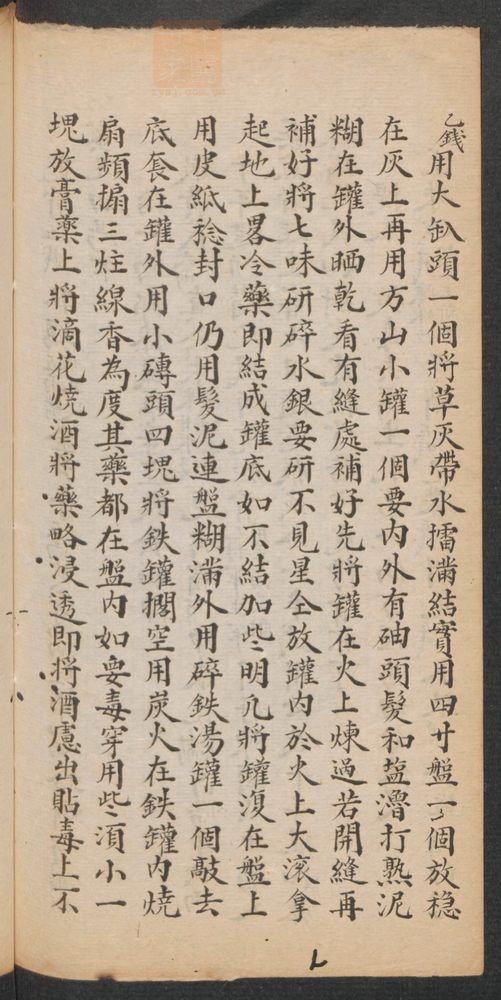 乙錢用大缸頭一個將草灰帶水擂滿結實用四寸盤一個放穩
在灰上再用方山小罐一個要內外有砶頭髮和盐滷打熟泥
糊在罐外晒乾看有縫處補好先將罐在火上煉過若開縫再
補好將七味研碎水銀要研不見星仝放罐內於火上大滚拿
起地上畧冷藥即結成罐底如不結加些明凣將罐復在盤上
用皮紙捻封口仍用髮泥連盤糊滿外用碎鉄湯罐一個敲去
底套在罐外用小磚頭四塊將鉄罐擱空用炭火在鉄罐內燒
扇頻搧三炷線香為度其藥都在盤內如要毒穿用些須小一
塊放膏藥上將滴花燒酒將藥略浸透即將酒慮出貼毒上不